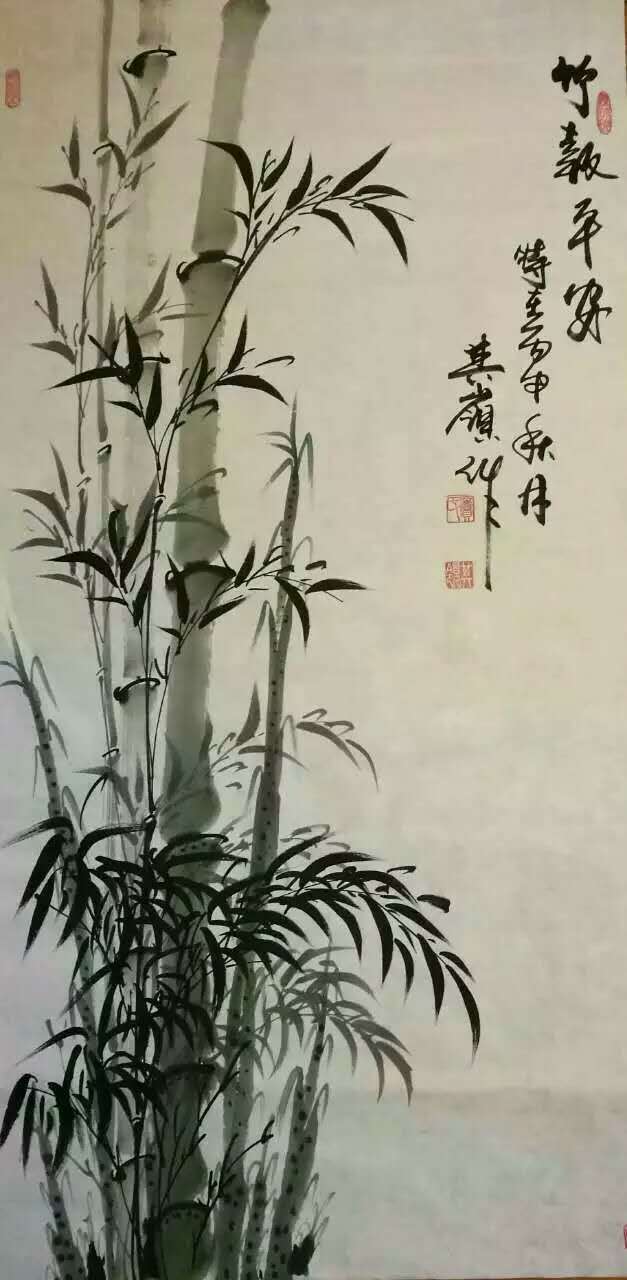 竹報平安
時在丙申秋月
其嶺作